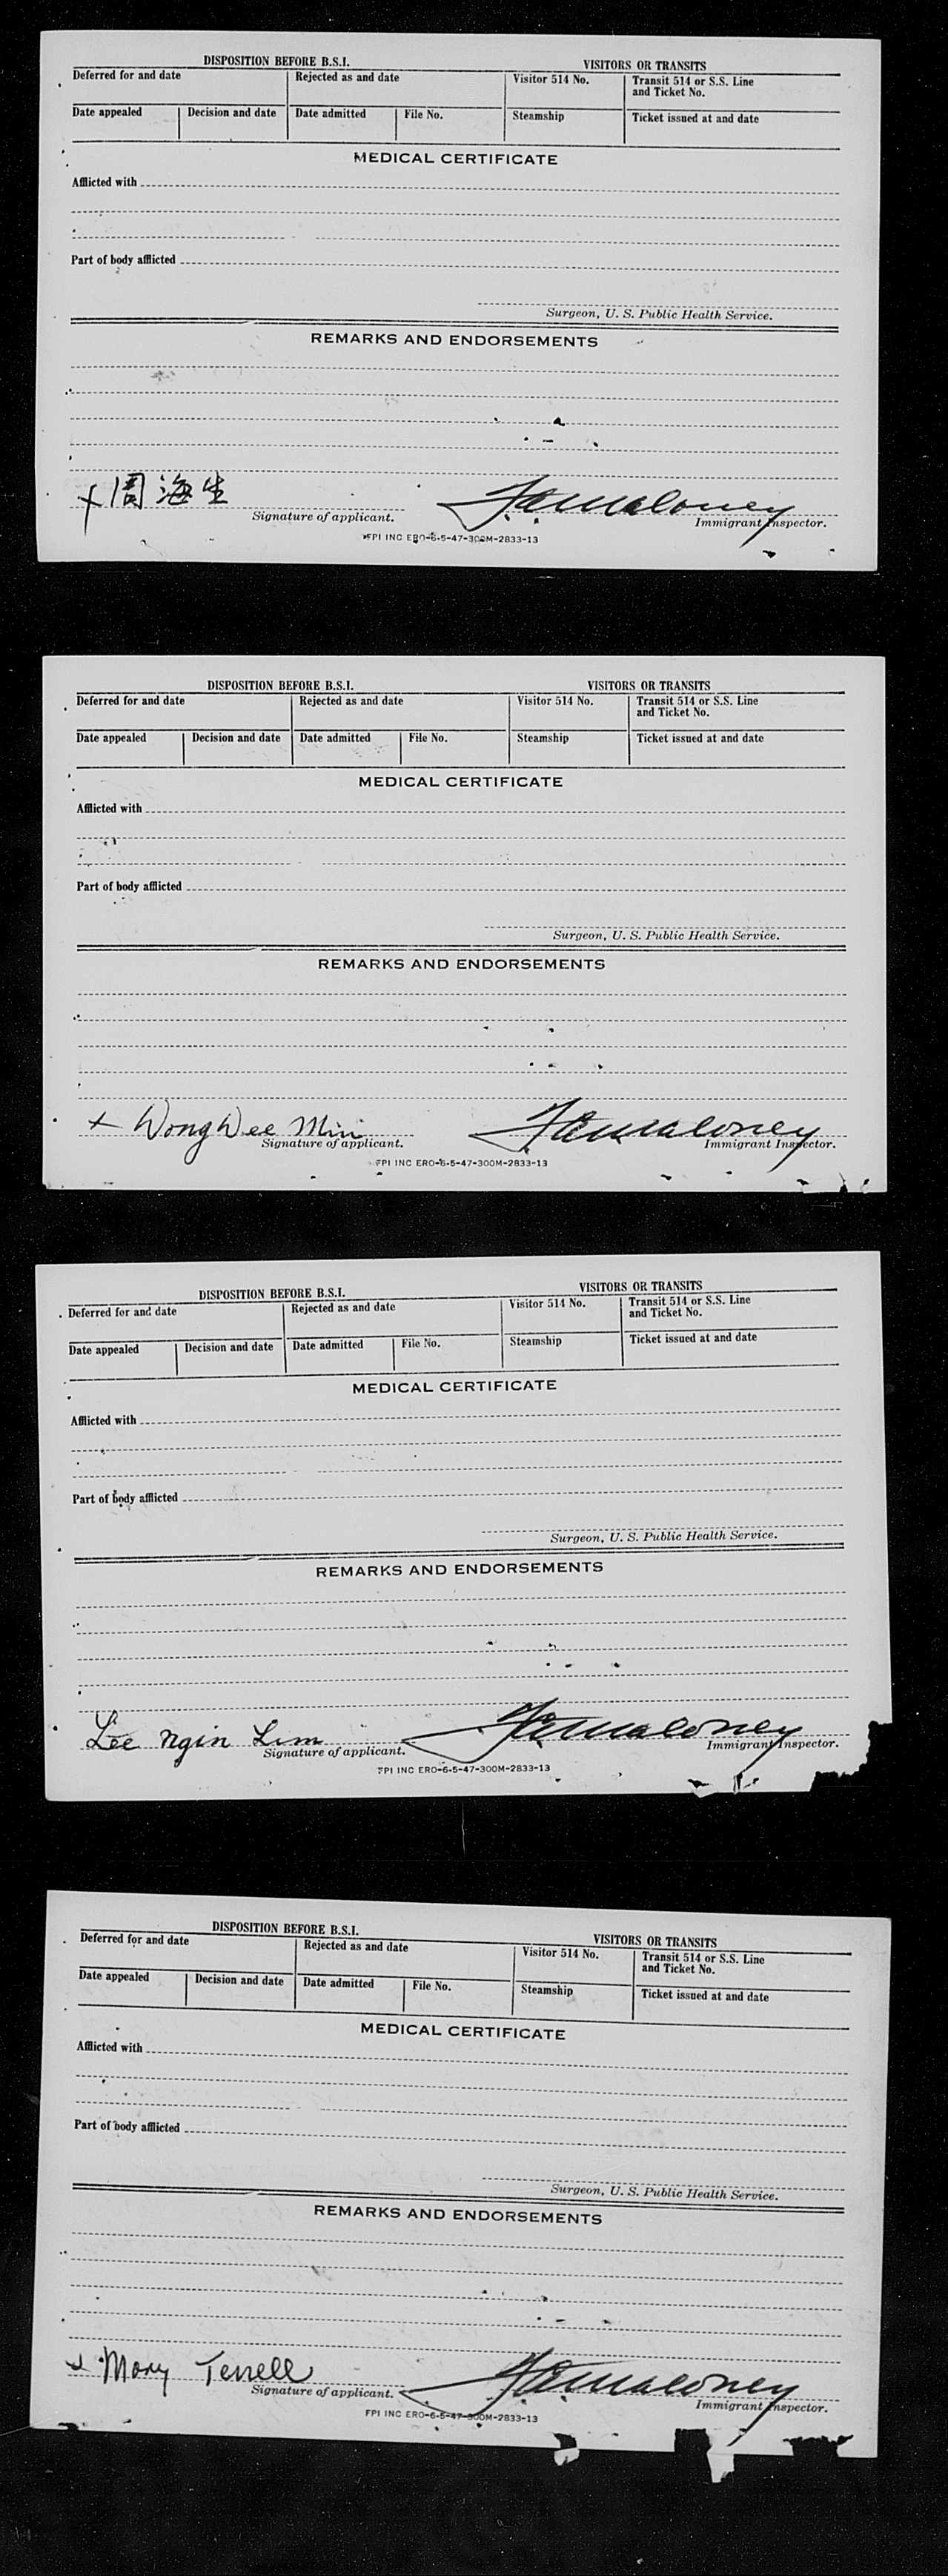 DISPOSITION BEFORE B.S.I. VISITORS OR TRANSITS
Deferred for and date Rejected as and date Visitor 514 No. Transit 514 or S.S. Line and Ticket No.
Date appealed Decision and date Date admitted File No. Steamship Ticket issued at and date
MEDICAL CERTIFICATE
Afflicted with
Part of body afflicted
Surgeon, U. S. Public Health Service.
REMARKS AND ENDORSEMENTS
x 周海生 Maloney
Signature of applicant. Immigrant Inspector.
FPI INC ERO-6-5-47-300M-2833-13
DISPOSITION BEFORE B.S.I. VISITORS OR TRANSITS
Deferred for and date Rejected as and date Visitor 514 No. Transit 514 or S.S. Line and Ticket No.
Date appealed Decision and date Date admitted File No. Steamship Ticket issued at and date
MEDICAL CERTIFICATE
Afflicted with
Part of body afflicted
Surgeon, U. S. Public Health Service.
REMARKS AND ENDORSEMENTS
x Wong Wee Min Maloney
Signature of applicant. Immigrant Inspector.
FPI INC ERO-6-5-47-300M-2833-13
DISPOSITION BEFORE B.S.I. VISITORS OR TRANSITS
Deferred for and date Rejected as and date Visitor 514 No. Transit 514 or S.S. Line and Ticket No.
Date appealed Decision and date Date admitted File No. Steamship Ticket issued at and date
MEDICAL CERTIFICATE
Afflicted with
Part of body afflicted
Surgeon, U. S. Public Health Service.
REMARKS AND ENDORSEMENTS
Lee Ngin Lim Maloney
Signature of applicant. Immigrant Inspector.
FPI INC ERO-6-5-47-300M-2833-13
DISPOSITION BEFORE B.S.I. VISITORS OR TRANSITS
Deferred for and date Rejected as and date Visitor 514 No. Transit 514 or S.S. Line and Ticket No.
Date appealed Decision and date Date admitted File No. Steamship Ticket issued at and date
MEDICAL CERTIFICATE
Afflicted with
Part of body afflicted
Surgeon, U. S. Public Health Service.
REMARKS AND ENDORSEMENTS
x Mary Terrell Maloney
Signature of applicant. Immigrant Inspector.
FPI INC ERO-6-5-47-300M-2833-13